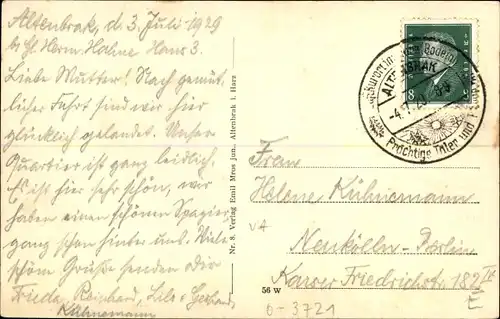 Altenbrak, d. 3. Juli 1929
b. Hl. Herm. Hahne Haus 3.
Liebe Mutter! Nach gemüt-
licher Fahrt sind wir hier
glücklich gelandet. Unser
Quartier ist ganz leidlich.
Es ist hier sehr schön, wir
haben einen schönen Spazier-
gang schon hinter uns. Viele
schöne Grüße senden Dir
Frieda, Reinhard, Lilo + Gerhard
Kühnemann
Nr. 8. Verlag Emil Mros jun., Altenbrak i. Harz
56 W
8
ALTENBRAK
-4.7.29
Prächtige Täler und
Frau
Helene Kühnemann
VA
Neukölln-Berlin
Kaiser Friedrichstr. 182 IV
E
0-3721